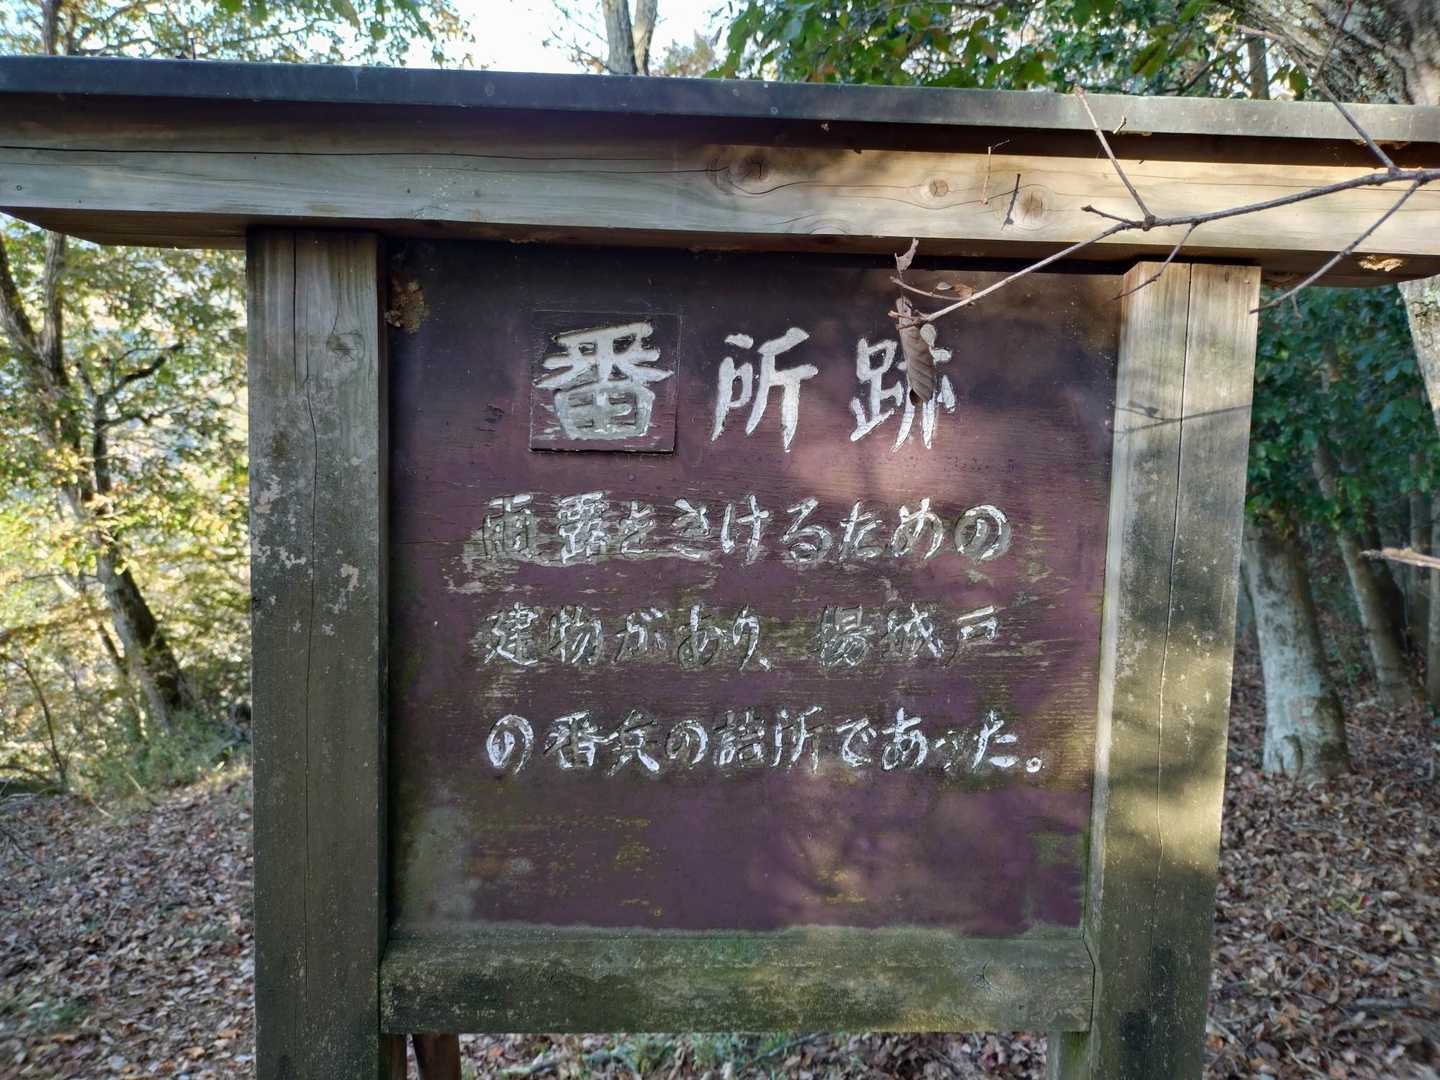 番所跡
雨露をさけるための
建物があり、揚城戸
の番兵の詰所であった。